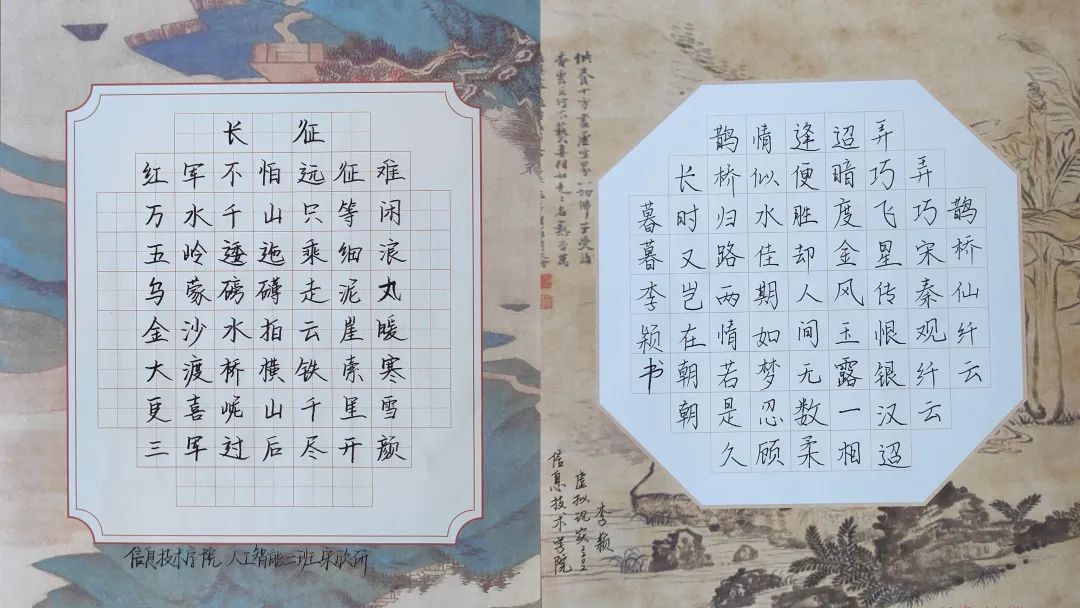 长征
红军不怕远征难
万水千山只等闲
五岭逶迤乘细浪
乌蒙磅礴走泥丸
金沙水拍云崖暖
大渡桥横铁索寒
更喜岷山千里雪
三军过后尽开颜
信息技术学院 人工智能二班
鹊桥仙纤云
弄巧宋秦观纤云
弄巧飞星传恨银汉迢
迢暗度金风玉露一相
逢便胜却人间无数柔
情似水佳期如梦忍顾
鹊桥归路两情若是久
长时又岂在朝朝
暮暮李颖书
李颖
虚拟现实
信息技术学院